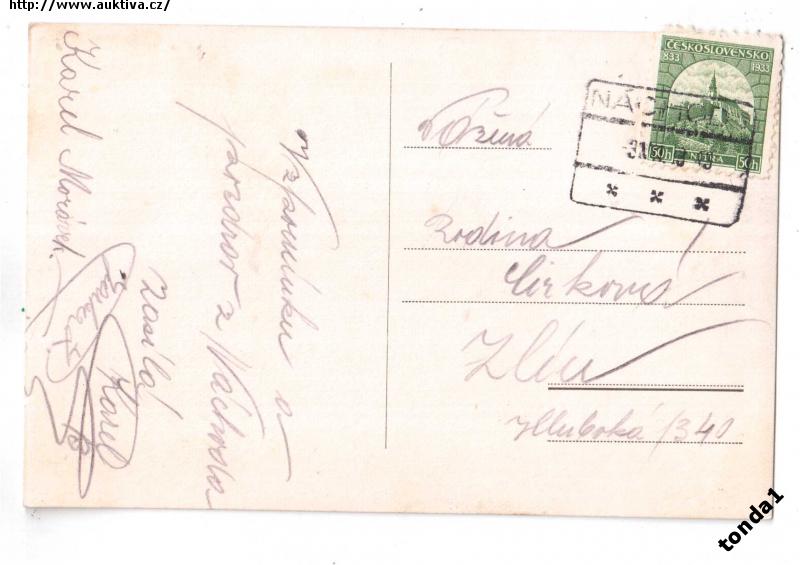 http://www.auktiva.cz/
Karel Morávek
Vzpomínku a
pozdrav z Náchoda
zasílá
Karel
ČESKOSLOVENSKO
833 1933
NITRA
50h 50h
Vážená
rodina
Zlín
Hluboká 1340
tonda1